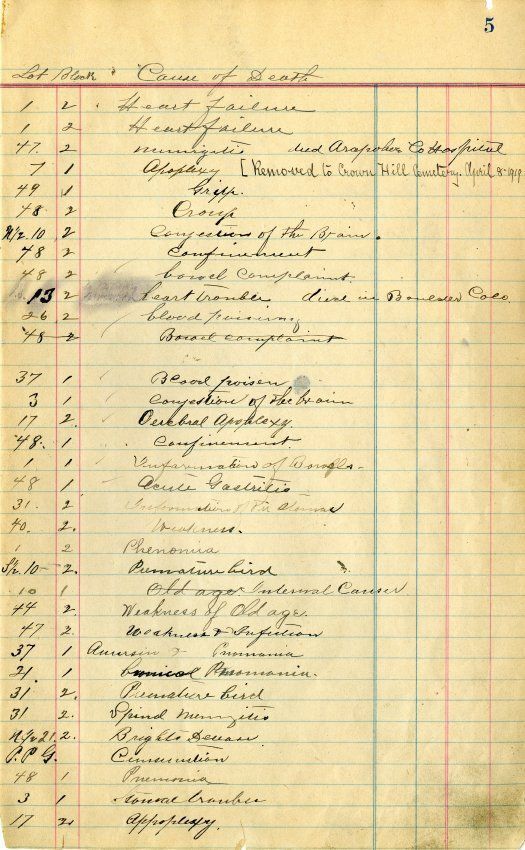 5
Lot Block Cause of Death
1 2 Heart failure
1 2 Heart failure
47. 2 Meningitis died Arapahoe Co Hospital
7 1 Apoplexy [Removed to Crown Hill Cemetery. April 8-1919
49 1 Gripp.
48 2 Croup
N/2.10 2 Congestion of the Brain.
48 2 Confinement
48 2 bowel Complaint.
13 2 heart trouble died in Boulder Colo.
26 2 blood poisning
48 2 Bowel complaint
37 1 Blood poisen
3 1 Congestion of the brain
17 2. Cerebral Apoplexy.
48. 1 Confinement
1 1 Infarmation of Bowells
48 1 Acute Gastritis
31. 2 Infarmation of
40. 2. Weakness.
1 2 Phenonia
S/2.10 2. Premature bird
10 1 Old age Internal Causes
44 2 Weakness of Old age.
47 2. Weakness &
37 1 & Pnomania
21. 1 Pnomonia.
31 2. Premature bird
31 2. Spind Meningitis
N/2 21. 2. Brights Desease
P.P.G. Consumtion
48 1 Pnemonia
3 1 trouble
17 2 Appoplexy.